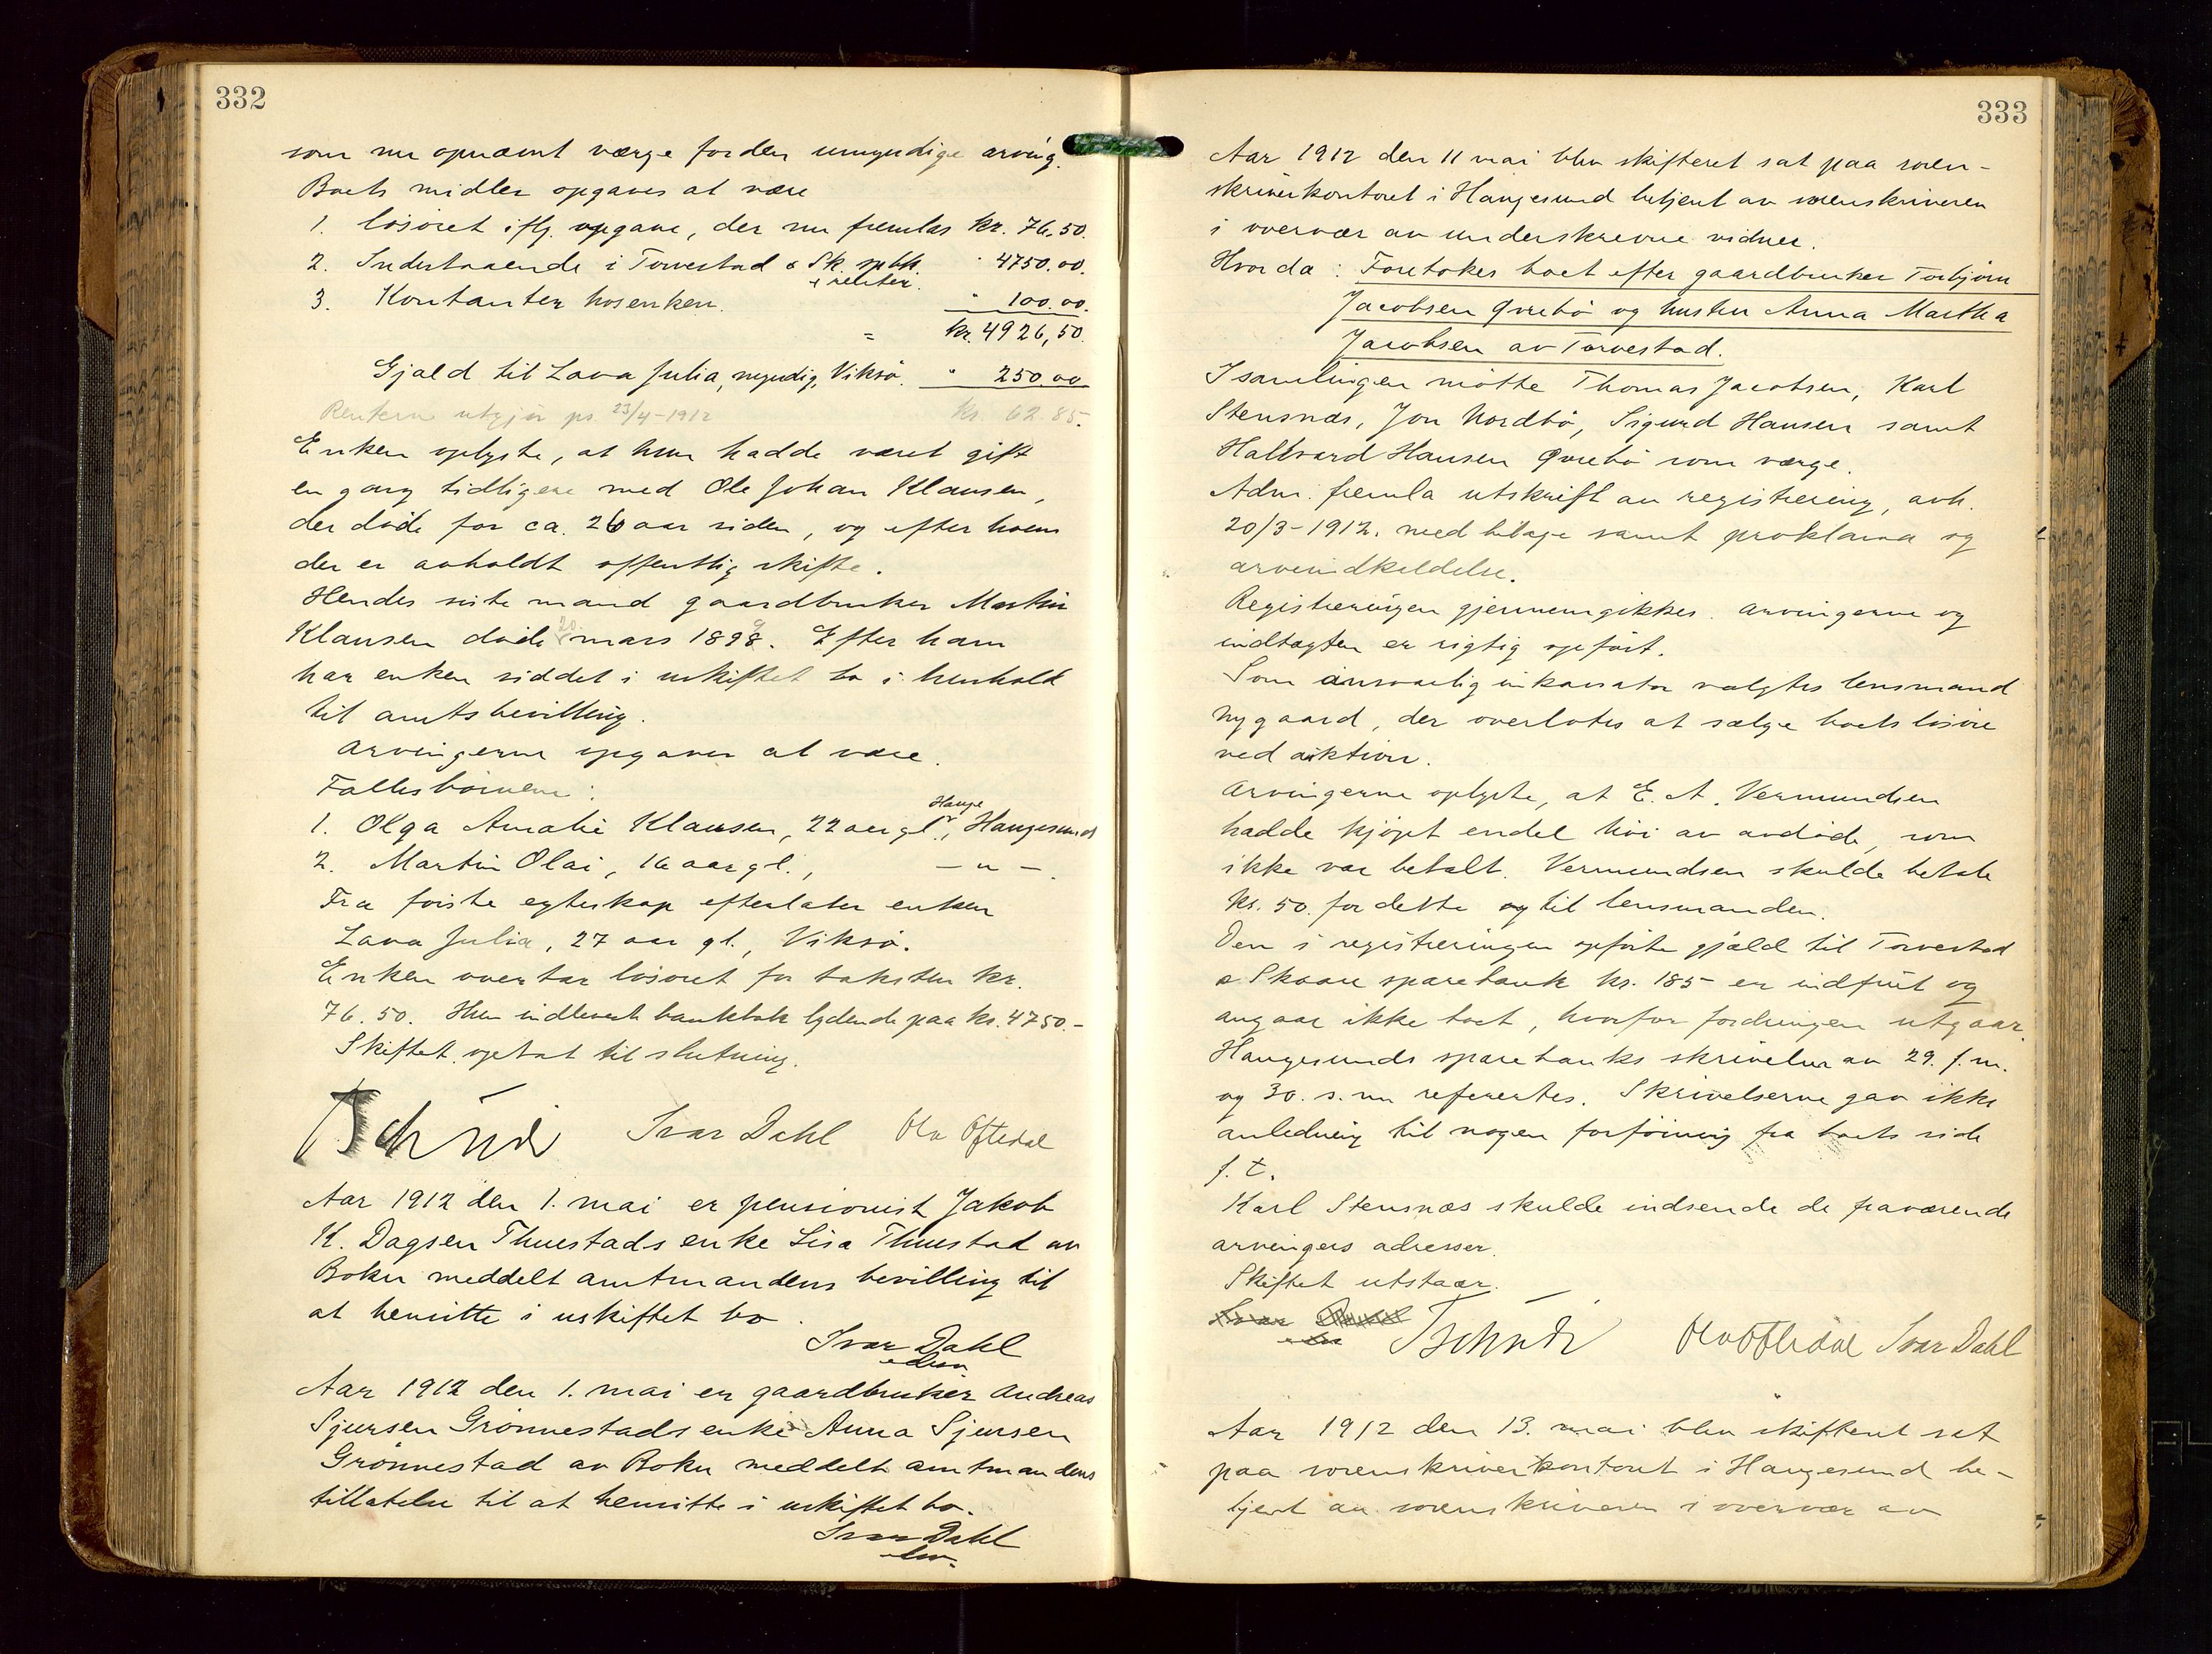 332
som nu opnævnt værge for den umyndige arving.
Boets midler opgaves at være
1. løsøret iflg. opgave, der nu fremlas kr. 76,50.
2. Indestaaende i Torvestad & Sk. spbk. " 4750.00.
+ renter.
3. Kontanter hos enken. " 100.00.
= kr. 4926,50.
Gjæld til Lava Julia, myndig, Viksø. " 250.00
Renterne utgjør pr. 23/4-1912 kr. 62.85.
Enken oplyste, at hun hadde været gift
en gang tidligere med Ole Johan Klausen,
der døde for ca. 26 aar siden, og efter hvem
der er avholdt offentlig skifte.
Hendes siste mand gaardbruker Martin
Klausen døde 20. mars 1899. Efter ham
har enken siddet i uskiftet bo i henhold
til amtsbevilling.
Arvingerne opgaves at være.
Fællesbørnene:
1. Olga Amalie Klausen, 22 aar gl., Hauge, Haugesund
2. Martin Olai, 16 aar gl., — " —.
Fra første egteskap efterlater enken
Lava Julia, 27 aar gl., Viksø.
Enken overtar løsøret for taksten kr.
76.50. Hun indleverte bankbok lydende paa kr. 4750.-
Skiftet optat til slutning.
Tschudi Ivar Dahl Olav Oftedal
Aar 1912 den 1. mai er pensionist Jakob
K. Dagsen Thuestads enke Lisa Thuestad av
Bokn meddelt amtmandens bevilling til
at hensitte i uskiftet bo.
Ivar Dahl
edsv.
Aar 1912 den 1. mai er gaardbruker Andreas
Sjursen Grønnestads enke Anna Sjursen
Grønnestad av Bokn meddelt amtmandens
tillatelse til at hensitte i uskiftet bo.
Ivar Dahl
edsv.
333
Aar 1912 den 11 mai blev skifteret sat paa soren-
skriverkontoret i Haugesund betjent av sorenskriveren
i overvær av underskrevne vidner.
Hvorda: Foretokes boet efter gaardbruker Torbjørn
Jacobsen Qvrebø og hustru Anna Martha
Jacobsen av Torvestad.
I samlingen møtte Thomas Jacobsen, Karl
Stensnæs, Jon Nordbø, Sigurd Hansen samt
Hallvard Hansen Qvrebø som værge.
Adm. fremla utskrift av registrering, avh.
20/3-1912. med bilage samt proklama og
arveindkaldelse.
Registreringen gjennemgikkes. Arvingerne og
indtægten er rigtig opført.
Som ansvarlig inkassator valgtes lensmand
Nygaard, der overlotes at sælge boets løsøre
ved auktion.
Arvingerne oplyste, at E. A. Vermundsen
hadde kjøpt endel høi av avdøde, som
ikke var betalt. Vermundsen skulde betale
kr. 50. for dette og til lensmanden.
Den i registreringen opførte gjæld til Torvestad
& Skaare sparebank kr. 185- er indfriet og
angaar ikke boet, hvorfor fordringen utgaar.
Haugesunds sparebanks skrivelser av 29. f.m.
og 30. s.m. referertes. Skrivelserne gav ikke
anledning til nogen forføining fra boets side
f. t.
Karl Stensnæs skulde indsende de fraværende
arvingers adresser.
Skiftet utstaar.
Ivar Dahl Tschudi Olav Oftedal Ivar Dahl
Aar 1912 den 13. mai blev skifteret sat
paa sorenskriverkontoret i Haugesund be-
tjent av sorenskriveren i overvær av